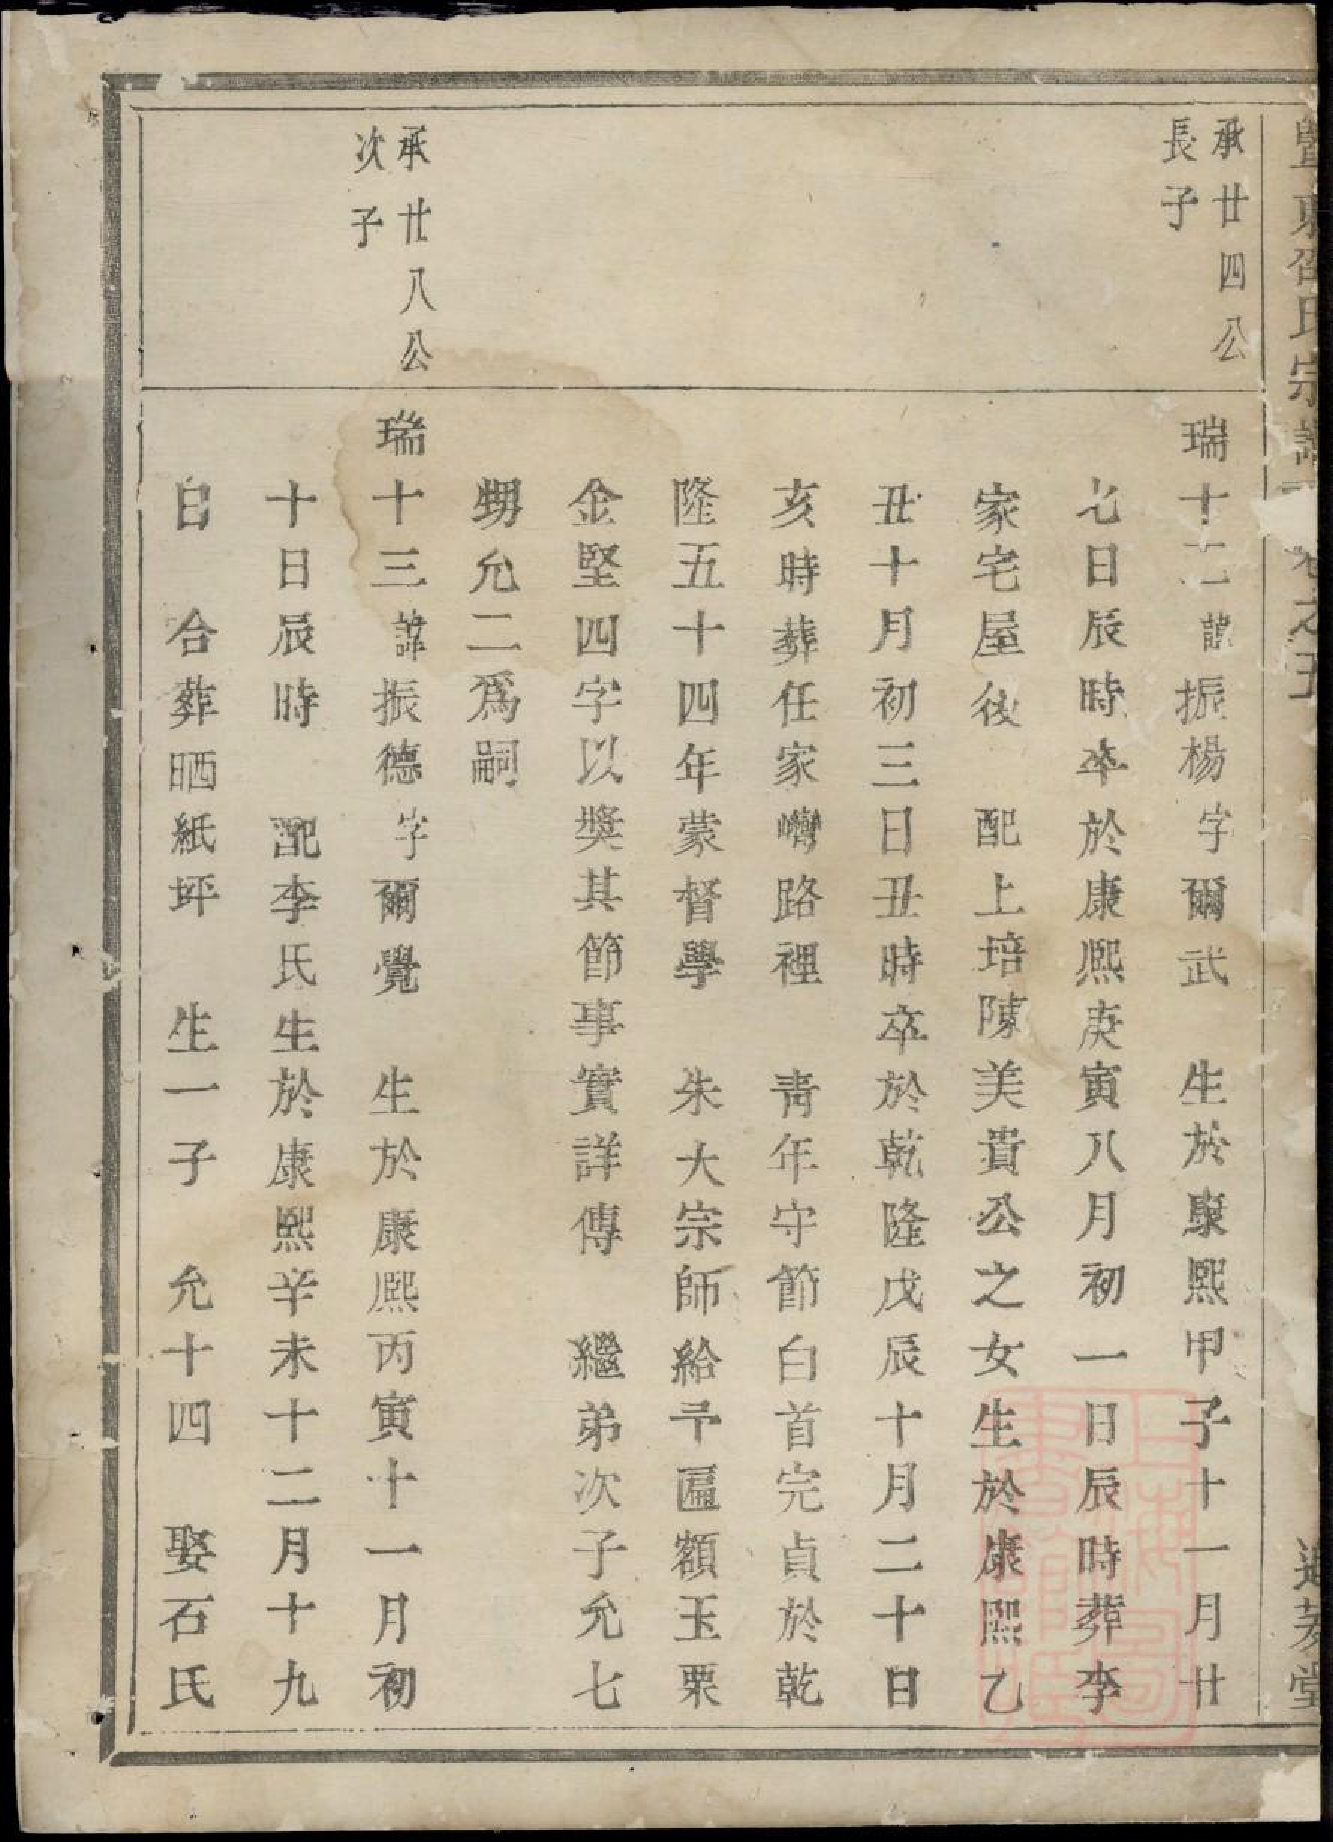 暨東邵氏宗譜 卷之五
承廿四公
長子
瑞十二諱振楊字爾武 生於康熙甲子十一月廿
七日辰時卒於康熙庚寅八月初一日辰時葬李
家宅屋後 配上培陳美貴公之女生於康熙乙
丑十月初三日丑時卒於乾隆戊辰十月二十日
亥時葬任家嶺路裡 青年守節白首完貞於乾
隆五十四年蒙督學 朱大宗師給予匾額玉栗
金堅四字以獎其節事實詳傳 繼弟次子允七
甥允二爲嗣
承廿八公
次子
瑞十三諱振德字爾覺 生於康熙丙寅十一月初
十日辰時 配李氏生於康熙辛未十二月十九
日 合葬晒紙坪 生一子 允十四 娶石氏
上海圖書館藏